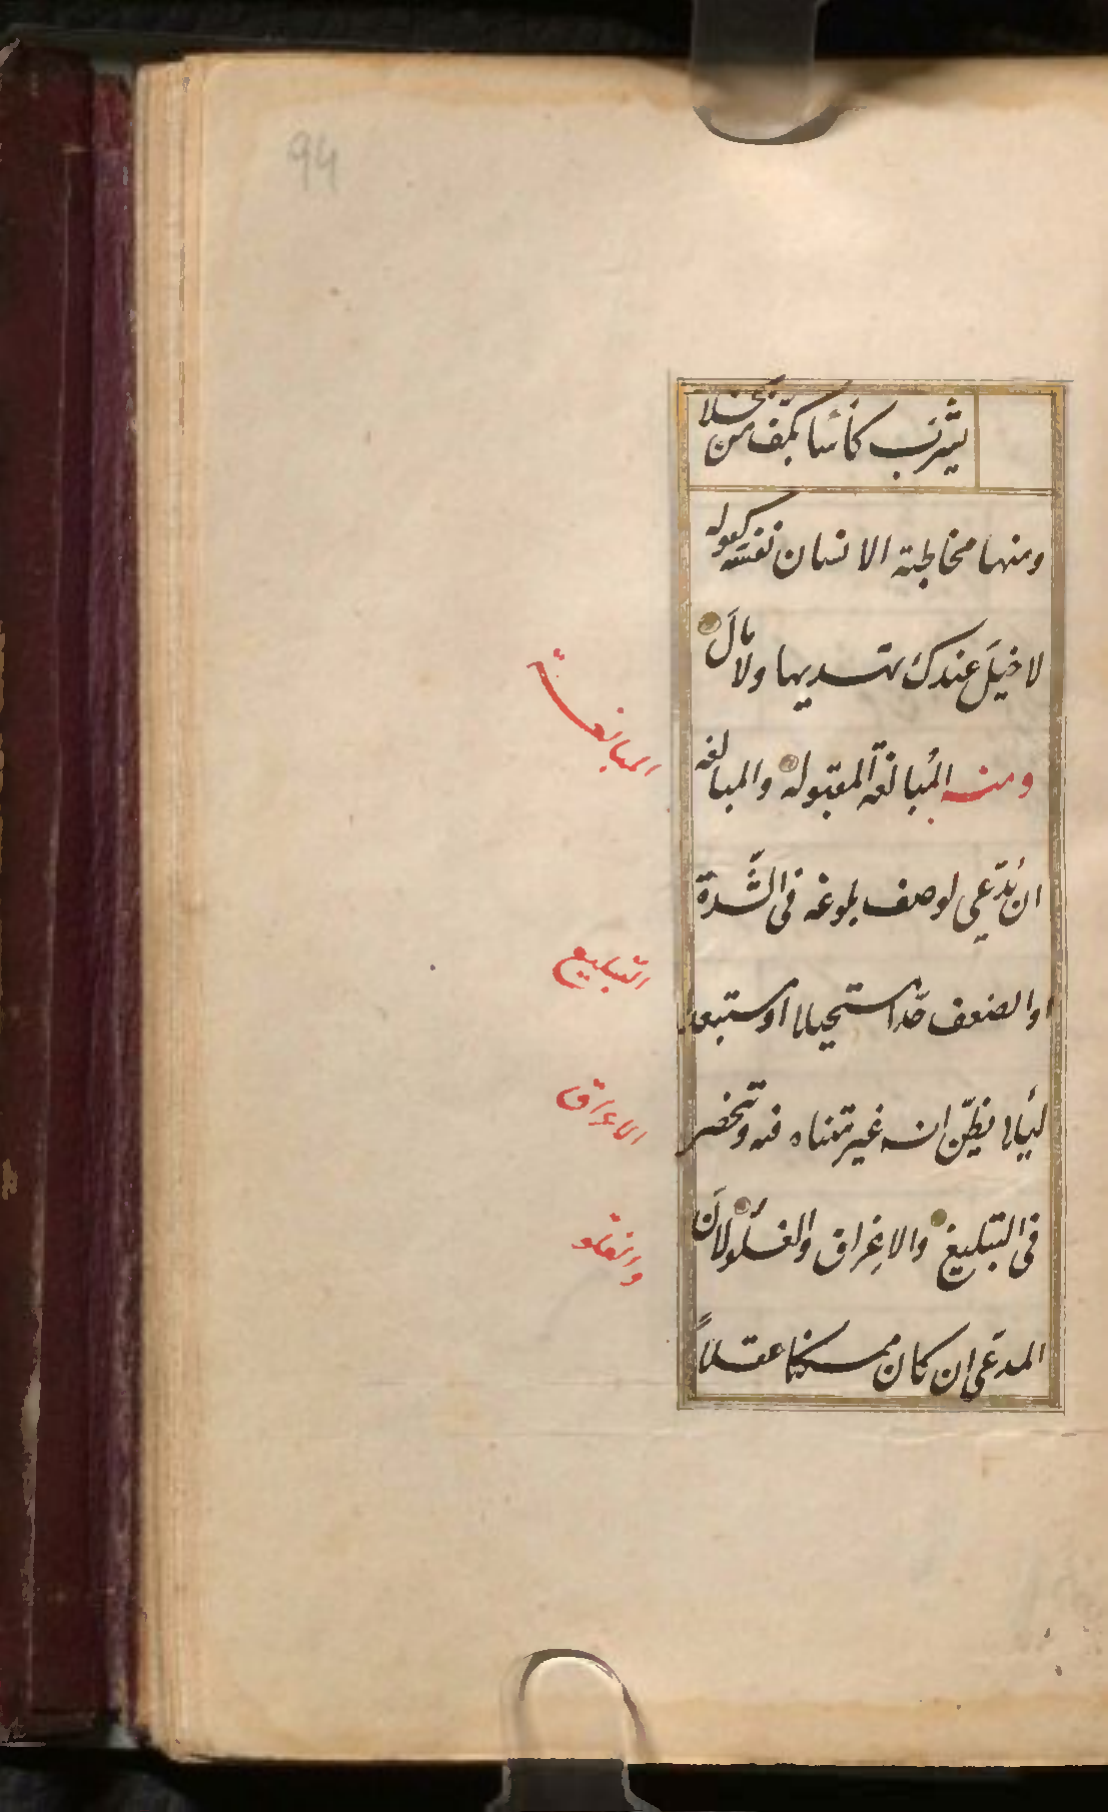 94
يشرب كأسا بكف من بخلا
ومنها مخاطبة الانسان نفسه كقوله
لا خيلَ عندك تهديها ولا مالَ
ومنه المُبالغة المقبوله والمبالغه
ان يُدّعي لوصف بلوغه فى الشّدة
او الضعف حدّا مستحيلا او مستبعدا
لئلا يظنّ انه غير متناه فيه وتنحصر
فى التبليغ والاغِراق والغلوّ لانَ
المدعّى ان كان ممكنا عقلاً
المبالغة
التبليغ
الاغراق
والغلو